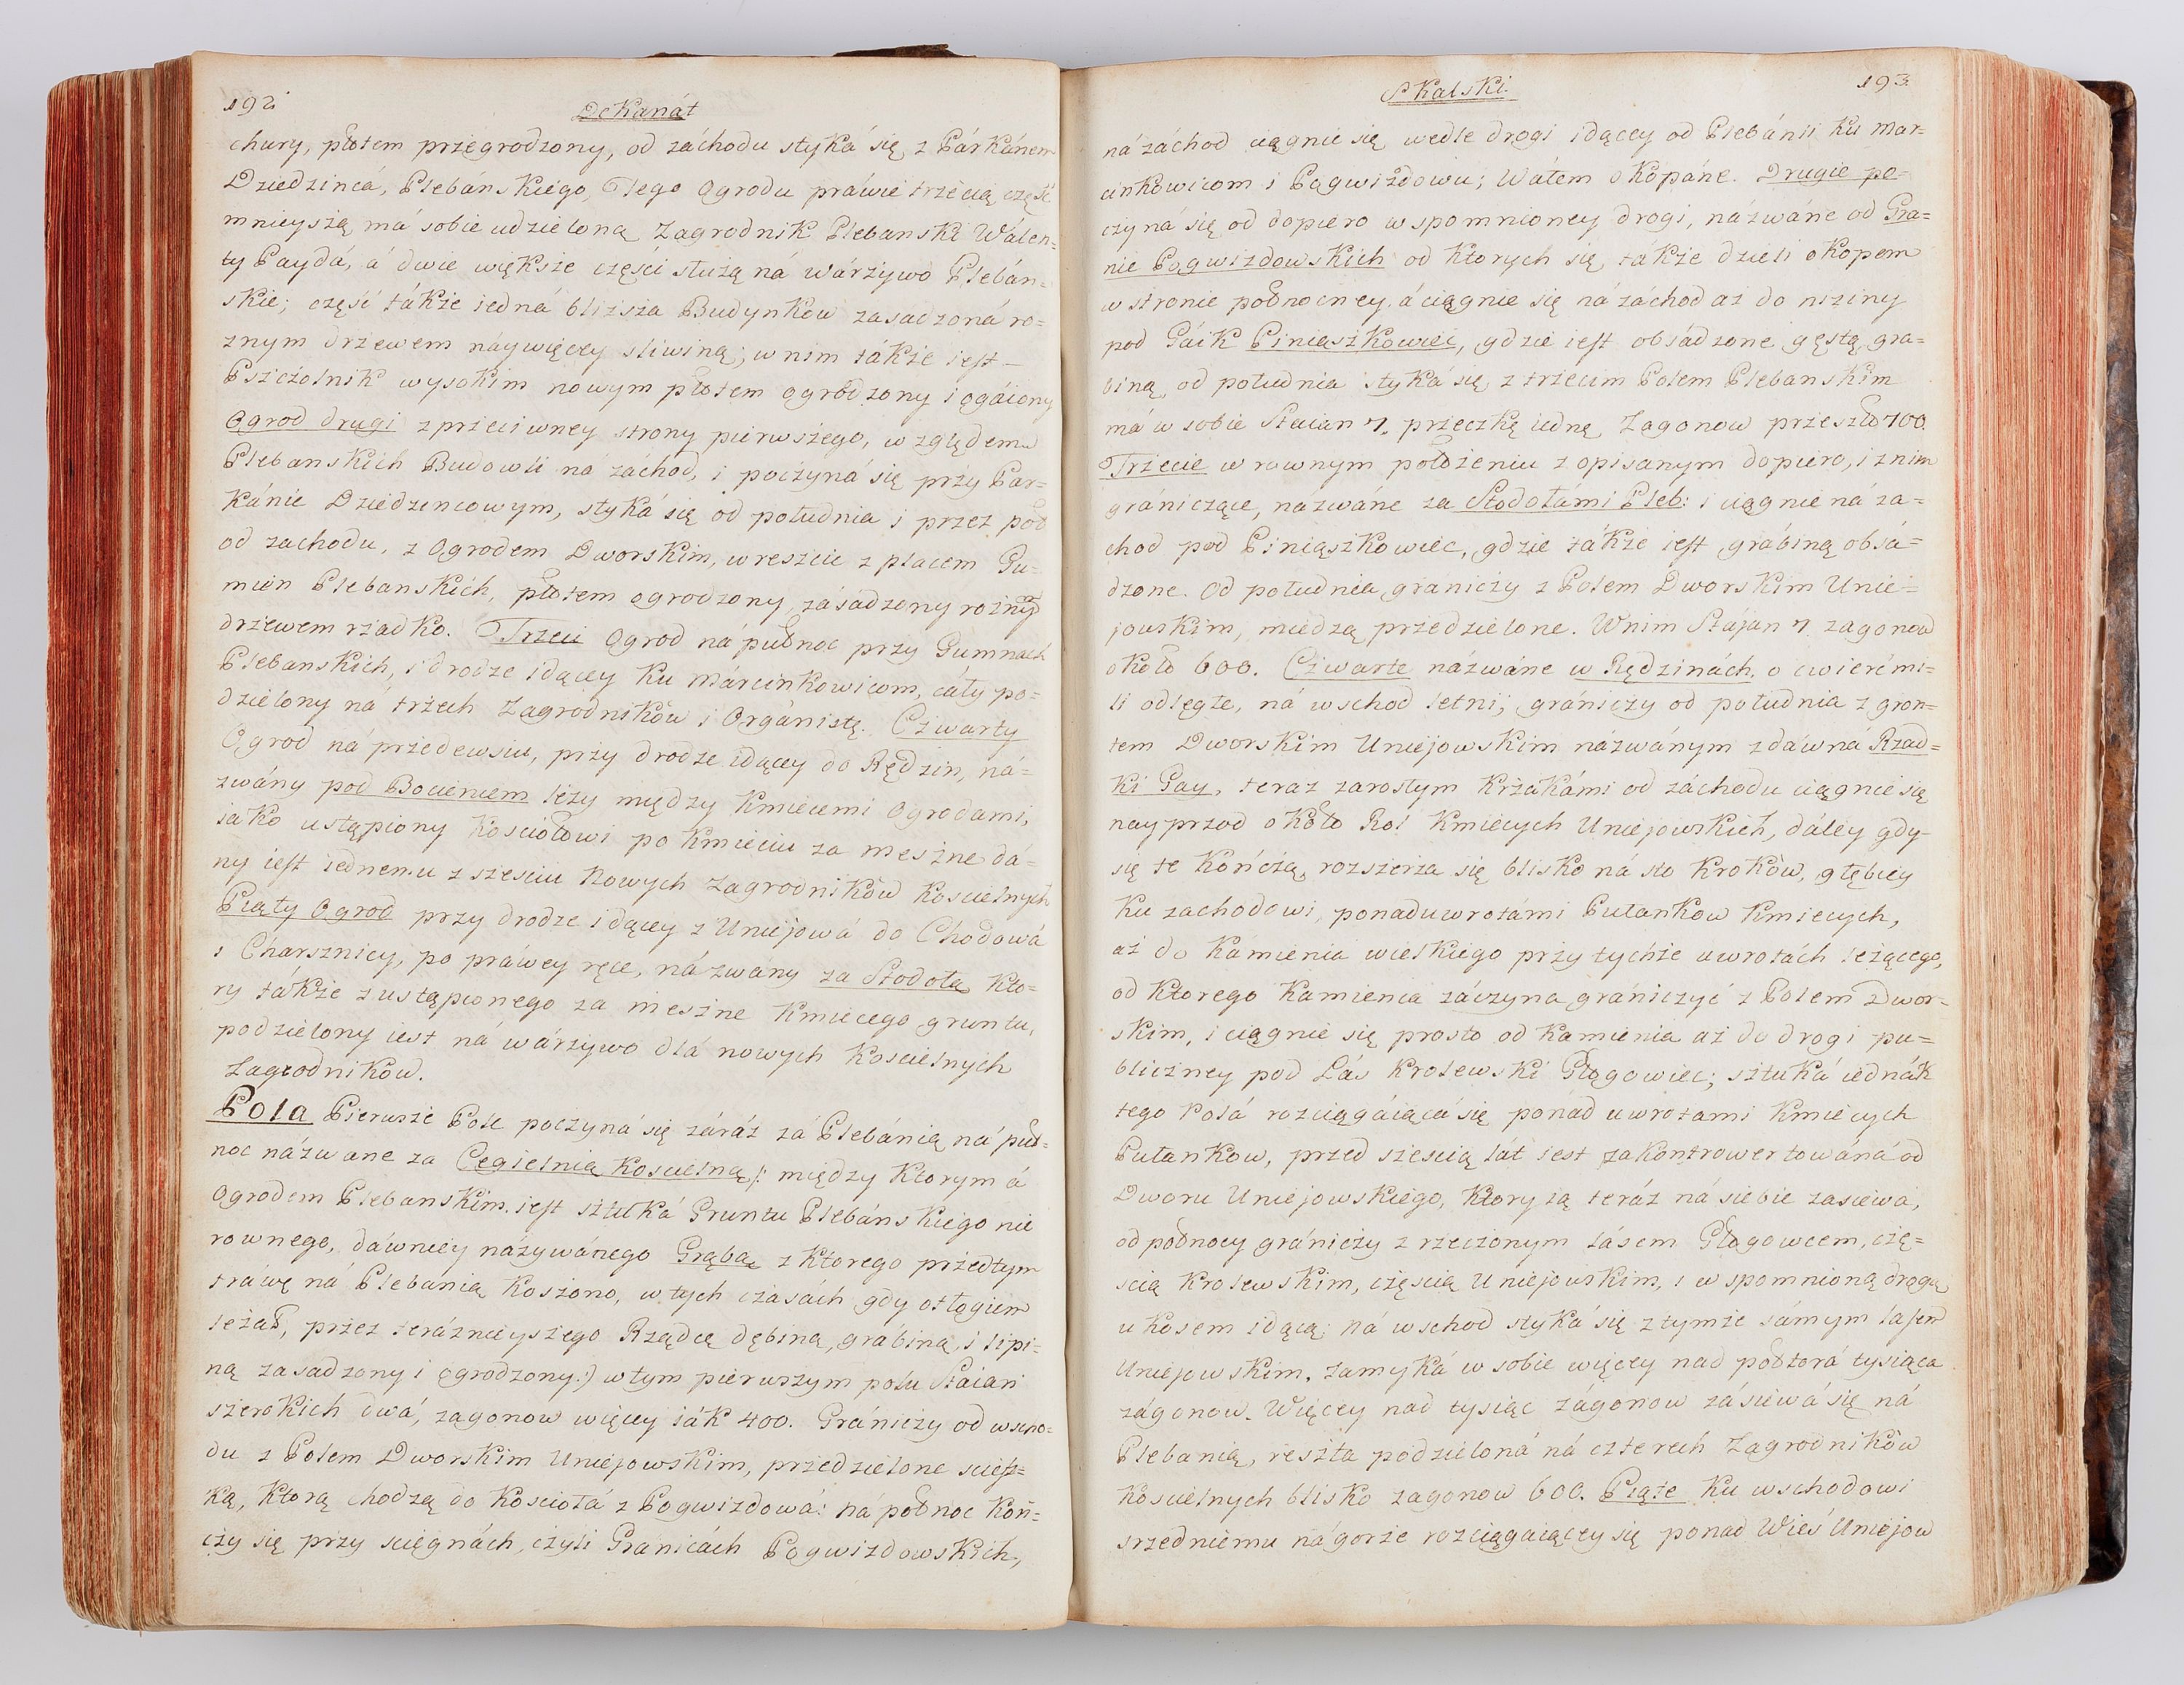 192
Dekanát
chury, płotem przegrodzony, od záchodu styká się z Párkánem
Dziedzincá, Plebánskiego, Tego Ogrodu práwie trzecią część
mnieyszą má sobie udzieloną Zagrodnik Plebanski Wálen=
ty Paydá, á dwie większe części służą ná wárzywo Plebán=
skie; część tákże iedná bliższa Budynkow zasadzoná ro=
znym drzewem náywięcey sliwiną; w nim tákże iest
Pszczolnik wysokim nowym płotem ogrodzony i ogáiony
Ogrod drugi z przeciwney strony pierwszego, względem
Plebanskich Budowli ná záchod, i poczyná się przy Par=
kánie Dziedzincowym, styká się od południa i przez poł
od zachodu, z Ogrodem Dworskim, wreszcie z placem Gu=
mien Plebanskich, płotem ogrodzony, zásadzony rożnÿ
drzewem rzadko. Trzeci Ogrod ná pułnoc przy Gumnach
Plebanskich, i drodze idącey ku Márcinkowicom, cáły po=
dzielony ná trzech Zagrodników i Orgánistę. Czwarty
Ogrod ná przedewsiu, przy drodze idącey do Rędzin, ná=
zwány pod Bocieniem leży między Kmiecemi Ogrodami,
iako ustąpiony Kosciołowi po Kmieciu za meszne dá=
ny iest iednemu z szesciu Nowych Zagrodników Koscielnych
Piąty Ogrod przy drodze idącey z Uniejowá do Chodowá
i Charsznicy, po práwey ręce, názwany za Stodołą kto=
ry tákże z ustąpionego za meszne Kmiecego gruntu,
podzielony iest ná wárzywo dlá nowych Koscielnych
Zagrodników.
Pola Pierwsze Pole poczyná się záráz zá Plebánią ná puł=
noc názwane za Cegielnią Koscielną /: między ktorym á
Ogrodem Plebanskim iest sztuká Gruntu Plebánskiego nie
rownego, dáwniey názywánego Grąbą z ktorego przedtym
tráwę ná Plebanią koszono, w tych czásách gdy odłogiem
leżał, przez teráznieyszego Rządcę dębiną, grabiną, i lipi=
ną zasadzony i ogrodzony :) w tym pierwszym polu Staian
szerokich dwá, zagonow więcey iák 400. Grániczy od wscho=
du z Polem Dworskim Uniejowskim, przedzielone ściesz=
ką, którą chodzą do Kosciołá z Pogwizdowá: ná połnoc koń=
czy się przy sciegnách, czyli Granicách Pogwizdowskich,
Skalski.
193.
ná záchod ciągnie się wedle drogi idącey od Plebánii ku Mar=
cinkowicom i Pogwizdowu; Wáłem okopáne. Drugie po=
czyná się od dopiero wspomnioney drogi, názwáne od Gra=
nic Pogwizdowskich od ktorych się także dzieli okopem
w stronie połnocney, á ciągnie się ná záchod aż do niziny
pod Gáik Piniąszkowiec, gdzie iest obsádzone gęstą gra=
biną, od południa styká się z trzecim Polem Plebanskim
má w sobie Staian 7. przeczkę iednę Zagonow przeszło 700.
Trzecie w rownym położeniu z opisanym dopiero, i z nim
grániczące, názwáne za Stodołámi Pleb: i ciągnie ná za=
chod pod Piniąszkowiec, gdzie tákże iest grábiną obsá=
dzone. Od południa graniczy z Polem Dworskim Unie=
jowskim, miedzą przedzielone. W nim Stájan 7. zagonow
około 600. Czwarte názwáne w Rędzinách, o cwierć mi=
li odległe, ná wschod letni; grániczy od południa z gron=
tem Dworskim Uniejowskim názwánym zdáwná Rzad=
ki Gay, teraz zarosłym krzakámi od záchodu ciągnie się
nayprzod około Rol Kmiecych Uniejowskich, dáley gdy
się te kończą, rozszerza się blisko ná sto krokow, głębiey
ku zachodowi, ponad uwrotámi Pułankow Kmiecych,
aż do Kamienia wielkiego przy tychże uwrotách leżącego,
od ktorego Kamienia záczyna grániczyć z Polem Dwor=
skim, i ciągnie się prosto od Kamienia aż do drogi pu=
bliczney pod Lás Krolewski Głogowiec; sztuká iednák
tego Polá rozciągáiącá się ponad uwrotami Kmiecych
Pułankow, przed sziescią lát iest zakontrowertowáná od
Dworu Uniejowskiego, ktory ią teráz ná siebie zasiewa,
od połnocy grániczy z rzeczonym lásem Głogowcem, czę=
scią Krolewskim, częscią Uniejowskim, i wspomnioną drogą
ukosem idącą; ná wschod styká się z tymże sámym lasem
Uniejowskim. Zamyká w sobie więcey nad połtorá tysiąca
zágonow. Więcey nad tysiąc zágonow zásiewá się ná
Plebanią, reszta podzieloná ná czterech Zagrodników
Koscielnych blisko zagonow 600. Piąte ku wschodowi
srzedniemu ná gorze rozciągáiącey się ponad Wieś Uniejow